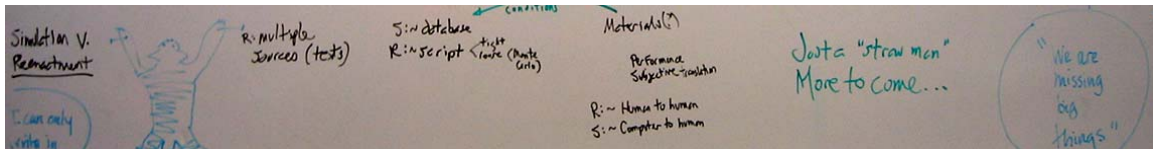 Simulation V.
Reenactment
I can only
write in
R: multiple
sources (texts)
conditions
S: ~ database
R: ~ script < tight
route (Monte
Carlo)
Materials(?)
Performance
Subjective translation
R: ~ Human to human
S: ~ Computer to human
Just a "straw man"
More to come...
"We are
missing
big
things"